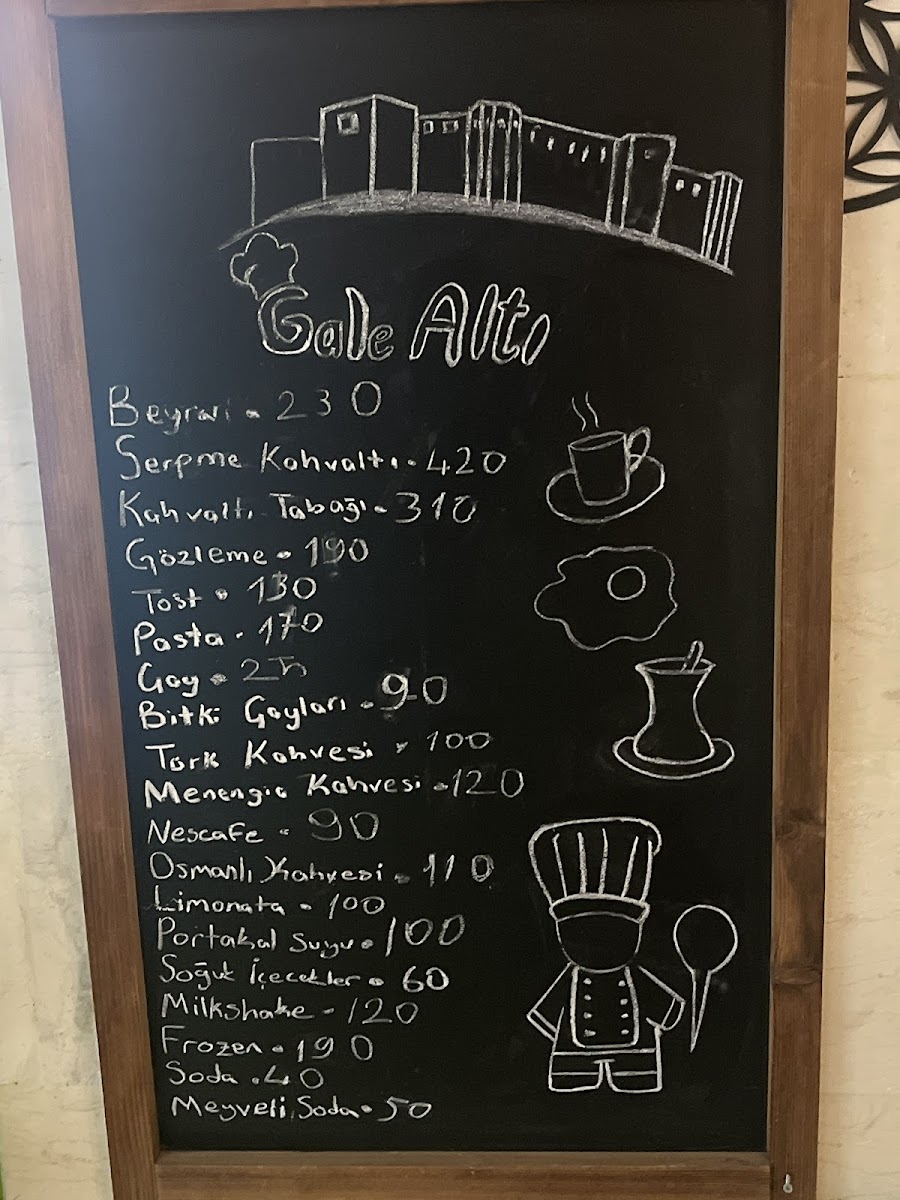 Gale Altı
Beyran 230
Serpme Kahvaltı 420
Kahvaltı Tabağı 310
Gözleme 190
Tost 130
Pasta 170
Çay
Bitki Çayları 90
Türk Kahvesi 100
Menengiç Kahvesi 120
Nescafe 90
Osmanlı Kahvesi 110
Limonata 100
Portakal suyu 100
Soğuk İçecekler 60
Milkshake 120
Frozen 190
Soda 40
Meyveli Soda 50